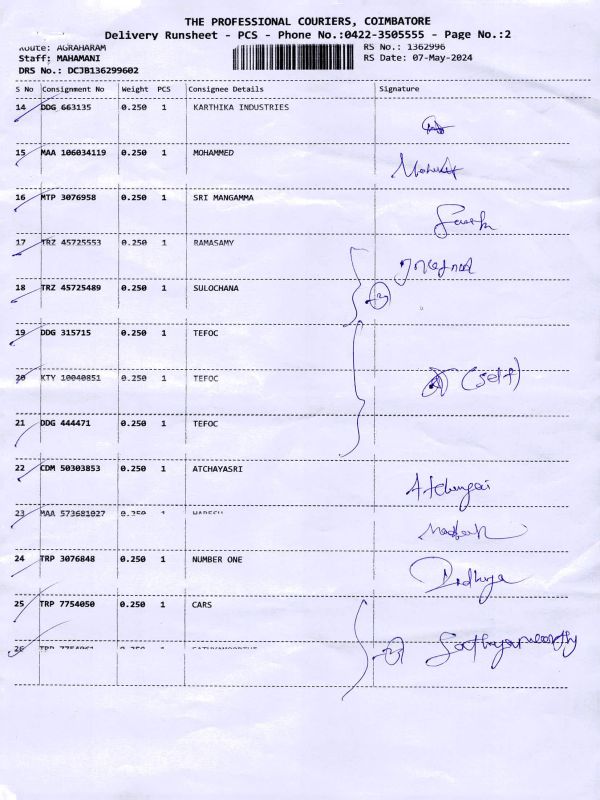 THE PROFESSIONAL COURIERS, COIMBATORE
Delivery Runsheet - PCS - Phone No.:0422-3505555 - Page No.:2
Route: AGRAHARAM RS No.: 1362996
Staff: MAHAMANI RS Date: 07-May-2024
DRS No.: DCJB136299602
S No Consignment No Weight PCS Consignee Details Signature
14 DDG 663135 0.250 1 KARTHIKA INDUSTRIES
15 MAA 106034119 0.250 1 MOHAMMED
16 MTP 3076958 0.250 1 SRI MANGAMMA
17 TRZ 45725553 0.250 1 RAMASAMY
18 TRZ 45725489 0.250 1 SULOCHANA
19 DDG 315715 0.250 1 TEFOC
20 KTY 10040851 0.250 1 TEFOC (self)
21 DDG 444471 0.250 1 TEFOC
22 CDM 50303853 0.250 1 ATCHAYASRI
23 MAA 573681027 0.250 1
24 TRP 3076848 0.250 1 NUMBER ONE
25 TRP 7754050 0.250 1 CARS
26 0.250 1 Sathyamoorthy